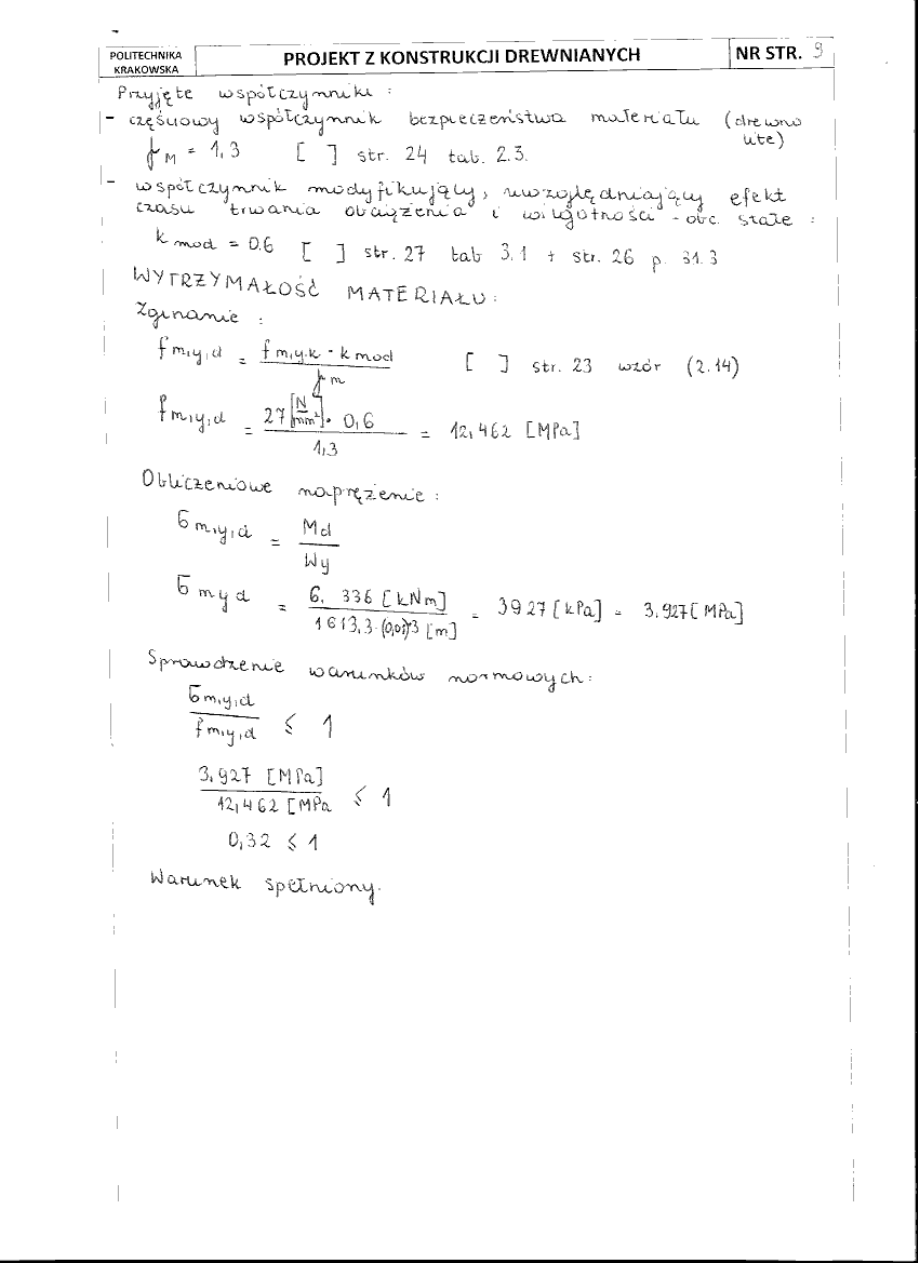 POLITECHNIKA
KRAKOWSKA
PROJEKT Z KONSTRUKCJI DREWNIANYCH
NR STR. 9
Przyjęte współczynniki :
- częściowy współczynnik bezpieczeństwa materiału (drewno
lite)
γM = 1,3 [ ] str. 24 tab. 2.3.
- współczynnik modyfikujący, uwzględniający efekt
czasu trwania obciążenia i wilgotności - obc. stałe :
k mod = 0.6 [ ] str. 27 tab 3.1 + str. 26 p. 31.3
WYTRZYMAŁOŚĆ MATERIAŁU :
Zginanie :
f m,y,d = f m,y.k · k mod / γ m [ ] str. 23 wzór (2.14)
f m,y,d = 27 [N/mm²] · 0,6 / 1,3 = 12,462 [MPa]
Obliczeniowe naprężenie :
σ m,y,d = Md / Wy
σ m y d = 6. 336 [kNm] / 1613,3·(0,01)^3 [m] = 3927 [kPa] = 3,927 [MPa]
Sprawdzenie warunków normowych :
σ m,y,d / f m,y,d ≤ 1
3,927 [MPa] / 12,462 [MPa ≤ 1
0,32 ≤ 1
Warunek spełniony.